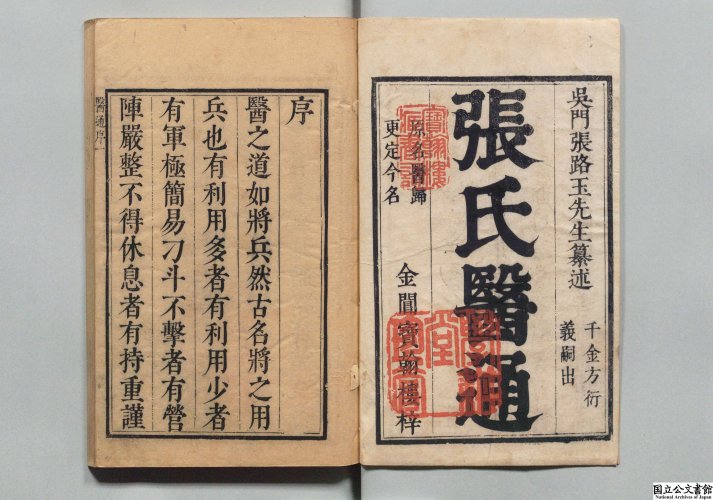 吳門張路玉先生纂述
千金方衍
義嗣出
張氏醫通
原名醫歸
更定今名
金閶寶翰樓梓
序
醫之道如將兵然古名將之用
兵也有利用多者有利用少者
有軍極簡易刁斗不擊者有營
陣嚴整不得休息者有持重謹
醫通序一
国立公文書館
National Archives of Japan